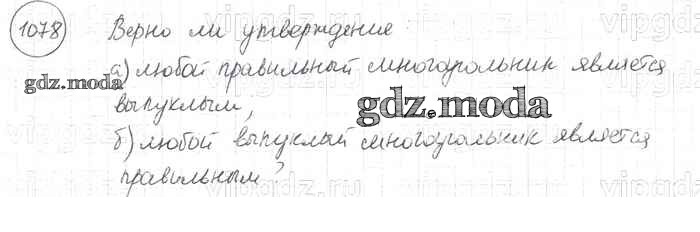 1078 Верно ли утверждение:
а) любой правильный многоугольник является
gdz.moda
выпуклым,
gdz.moda
б) любой выпуклый многоугольник является
правильным?
vipgdz.ru